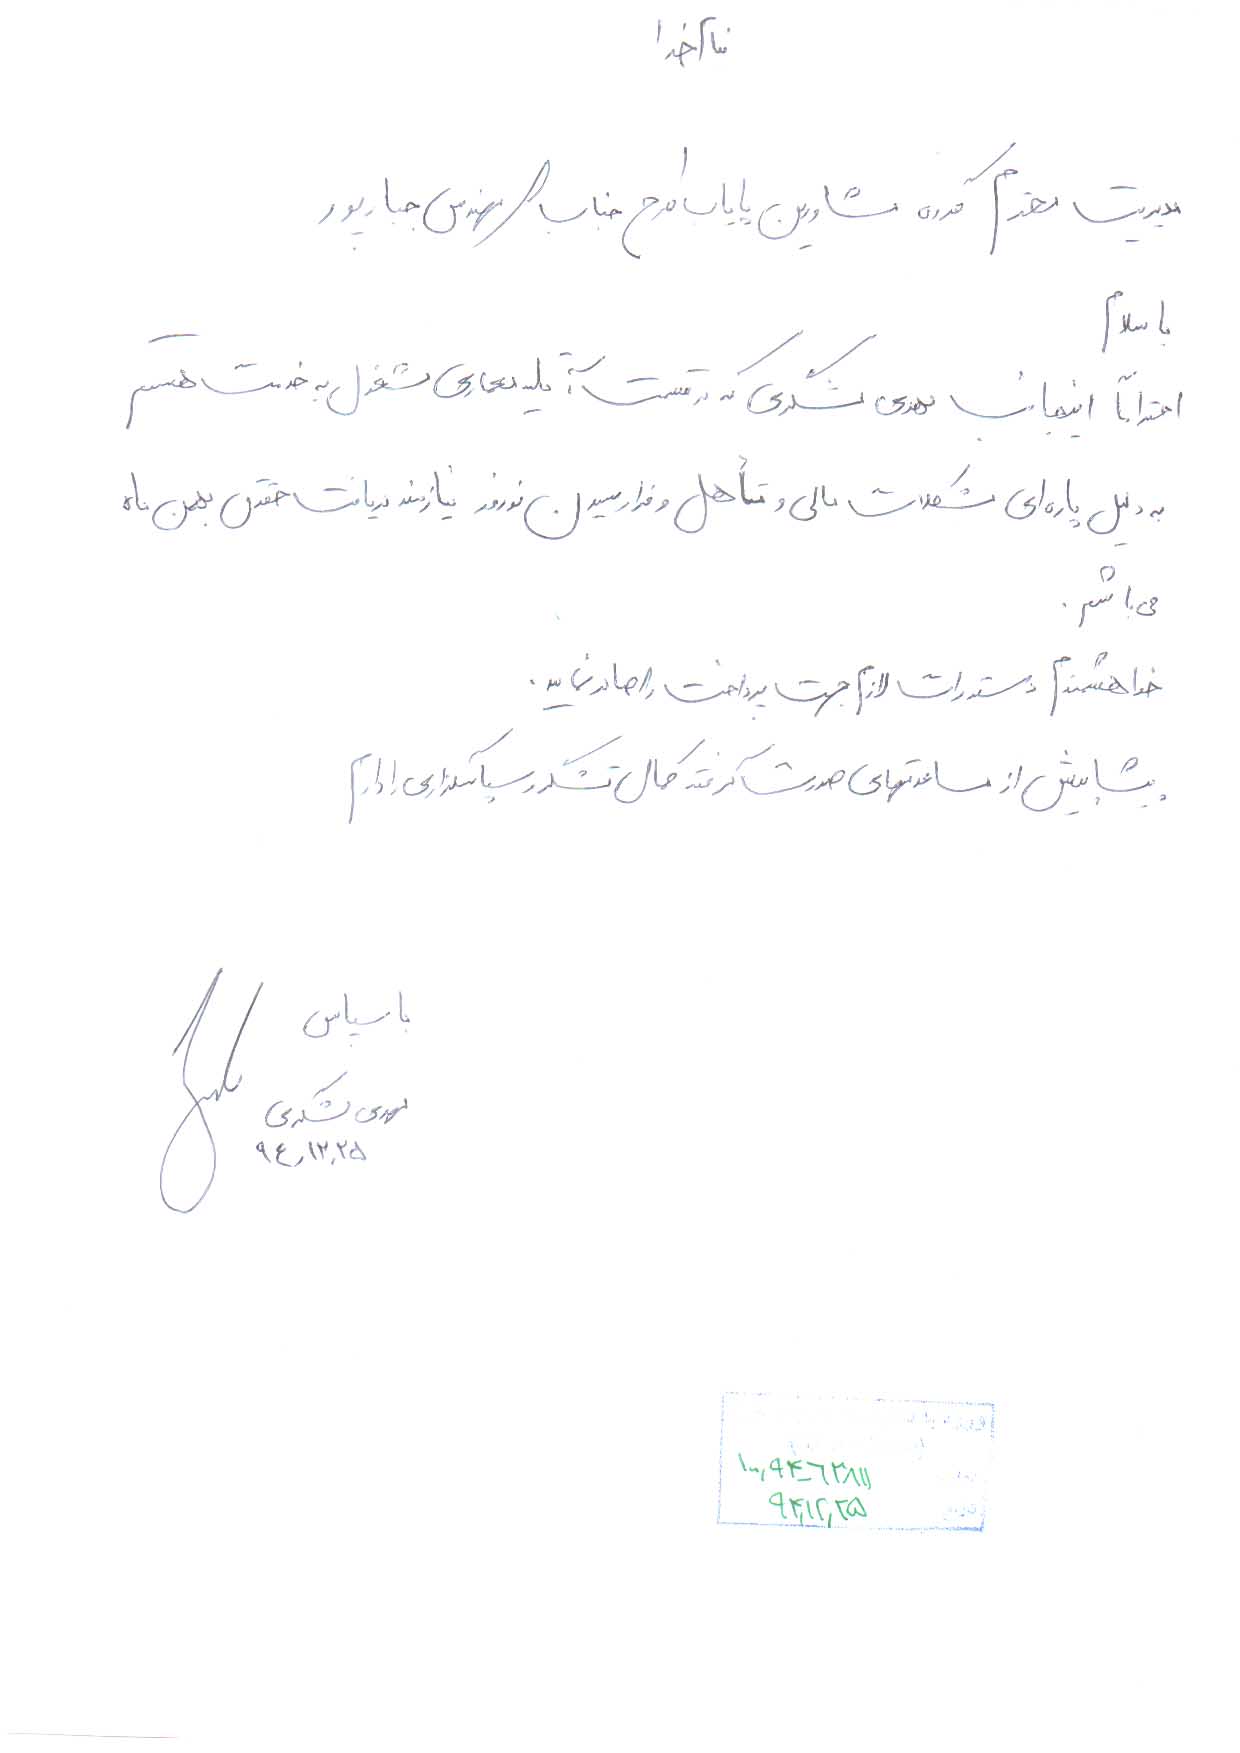 بنام خدا
مدیریت محترم گروه مشاورین پایاب طرح جناب مهندس جبارپور
با سلام
احتراماً اینجانب مهدی شکری که در قسمت آتلیه معماری مشغول به خدمت هستم
به دلیل پاره‌ای مشکلات مالی و تأهل و فرا رسیدن نوروز نیازمند دریافت حقوق بهمن ماه
می‌باشم.
خواهشمندم دستورات لازم جهت پرداخت را صادر نمایید.
پیشاپیش از مساعدتهای صورت گرفته کمال تشکر و سپاسگزاری را دارم
با سپاس
مهدی شکری
۹٤,۱۲,۲۵
۹۴,۱۲,۲۵